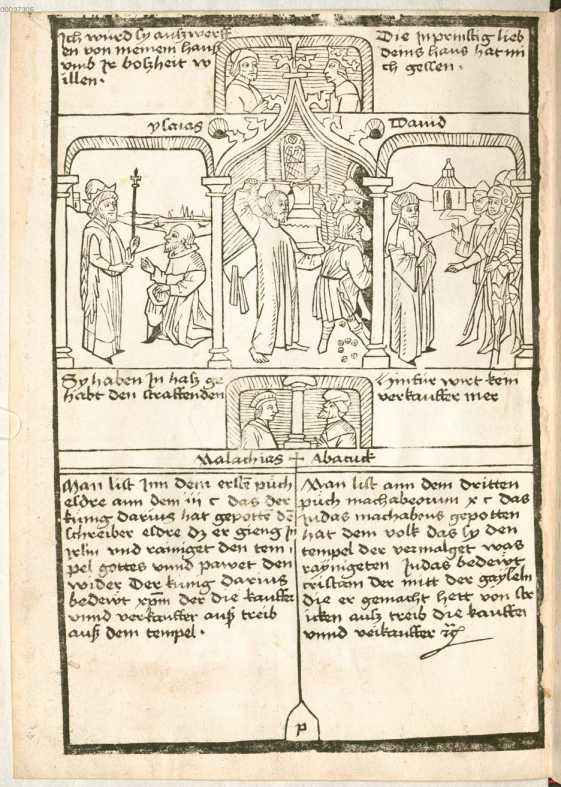 00037305
Ich würd sy auszwerff
en von meinem haus
vmb Ir boszheit w
illen.
Die Inprinstig lieb
deins haus hat mi
ch gessen.
ysaias
Dauid
Sy haben In hasz ge
habt den straffenden
Hinfür wirt kein
verkauffer mer
Malachias
Abacuck
Man list Inn dem ersten puch
esdre ann dem iii c das der
künig darius hat gepotten dem
schreiber esdre dz er gieng In
vnd rainiget den tem
pel gottes vnnd pawet den
wider Der kung darius
bedewt xpm der die kauffer
vnnd verkauffer ausz treib
ausz dem tempel.
Man list ann dem dritten
puch machabeorum x c das
Judas machabeus gepotten
hat dem volk das sy den
tempel der vermalget was
raynigeten Judas bedewt
cristum der mitt der gayseln
die er gemacht hett von str
icken ausz treib die kauffer
vnnd verkauffer
p